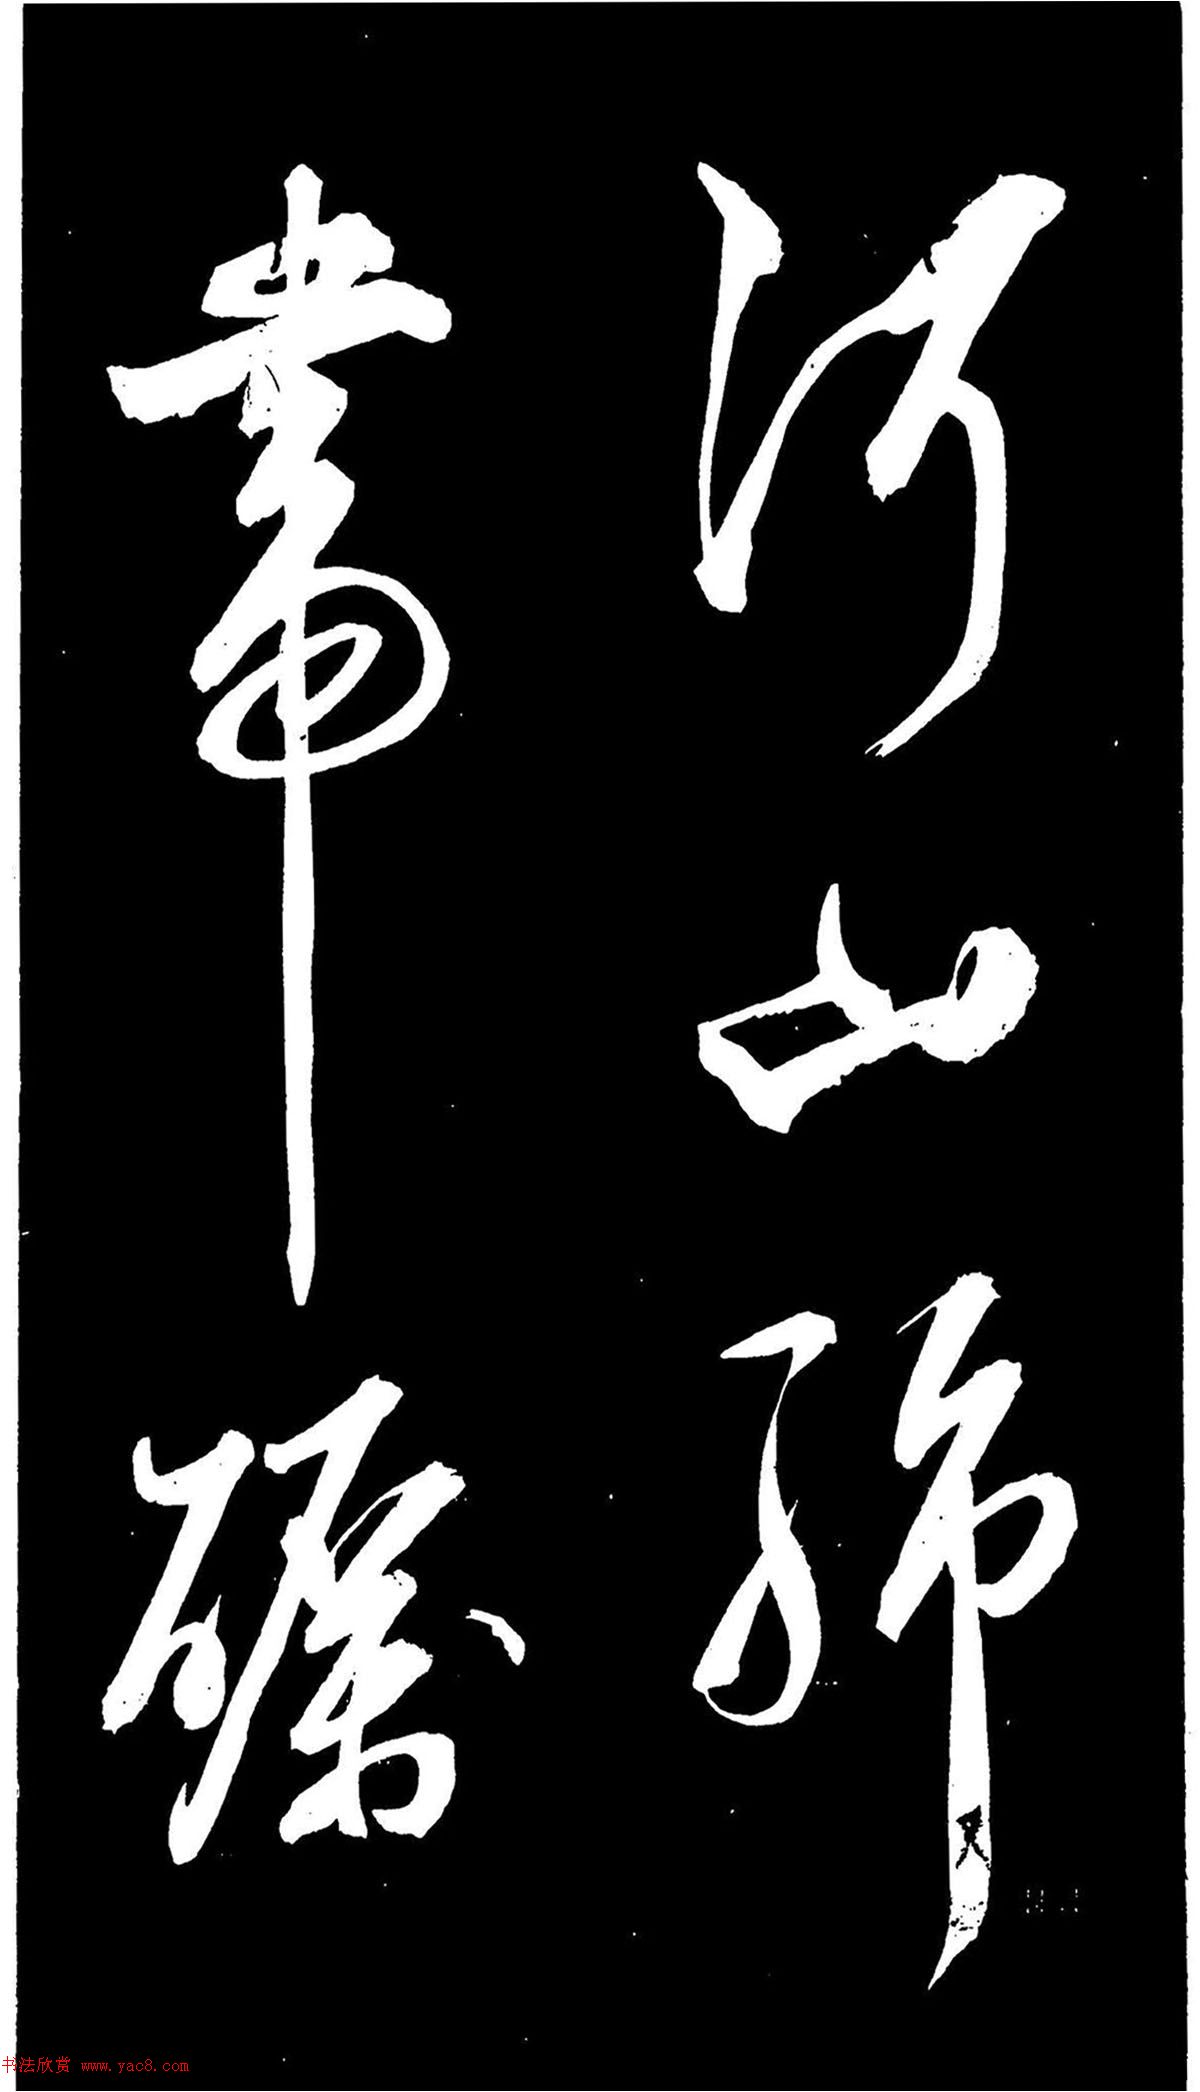 河山歸
帶礪
书法欣赏 www.yac8.com